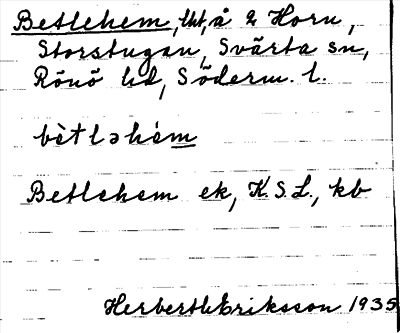 Betlehem, lht, å 2 Horn,
Storstugan, Svärta sn,
Rönö hd, Söderm. l.
bètləhèm
Betlehem ek, K.S.L., kb
Herbert Eriksson 1935